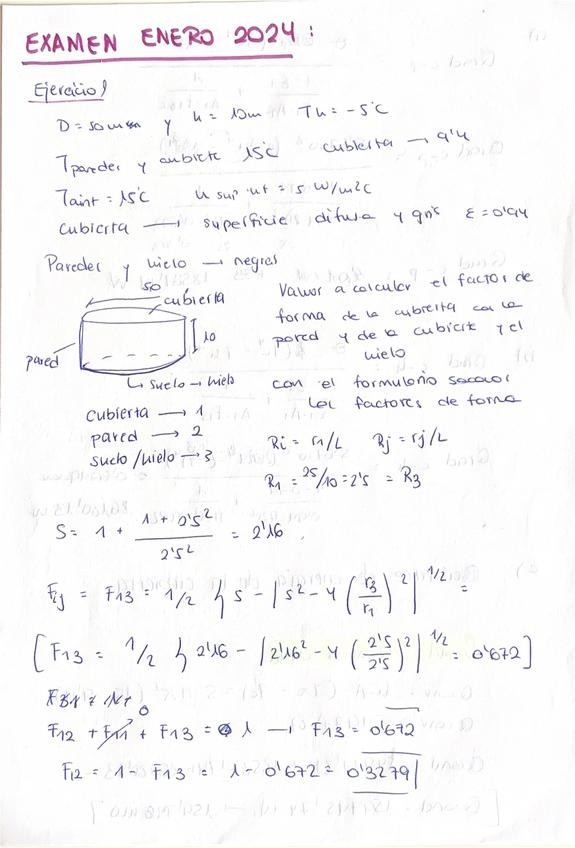 EXAMEN ENERO 2024:
Ejercicio 1
D = 50m y h = 10m Th = -5°C
Tparedes y cubierta 15°C cubierta → 9'4
Taint = 15°C h sup int = 5 W/m2C
cubierta → superficie difusa y gris ε = 0'94
Paredes y hielo → negras
50
cubierta
10
pared
↳ suelo → hielo
Vamos a calcular el factor de
forma de la cubierta con la
pared y de la cubierta y el
hielo
con el formulario sacamos
los factores de forma
cubierta → 1
pared → 2
suelo/hielo → 3
Ri = ri/L Rj = rj/L
R1 = 25/10 = 2'5 = R3
S = 1 + (1 + 2'5²)/(2'5²) = 2'16
Fij = F13 = 1/2 { S - [S² - 4 (r3/r1)²]^1/2 =
[F13 = 1/2 { 2'16 - [2'16² - 4 (2'5/2'5)²]^1/2 = 0'672]
0
F12 + F11 + F13 = 1 → F13 = 0'672
F12 = 1 - F13 = 1 - 0'672 = 0'3279